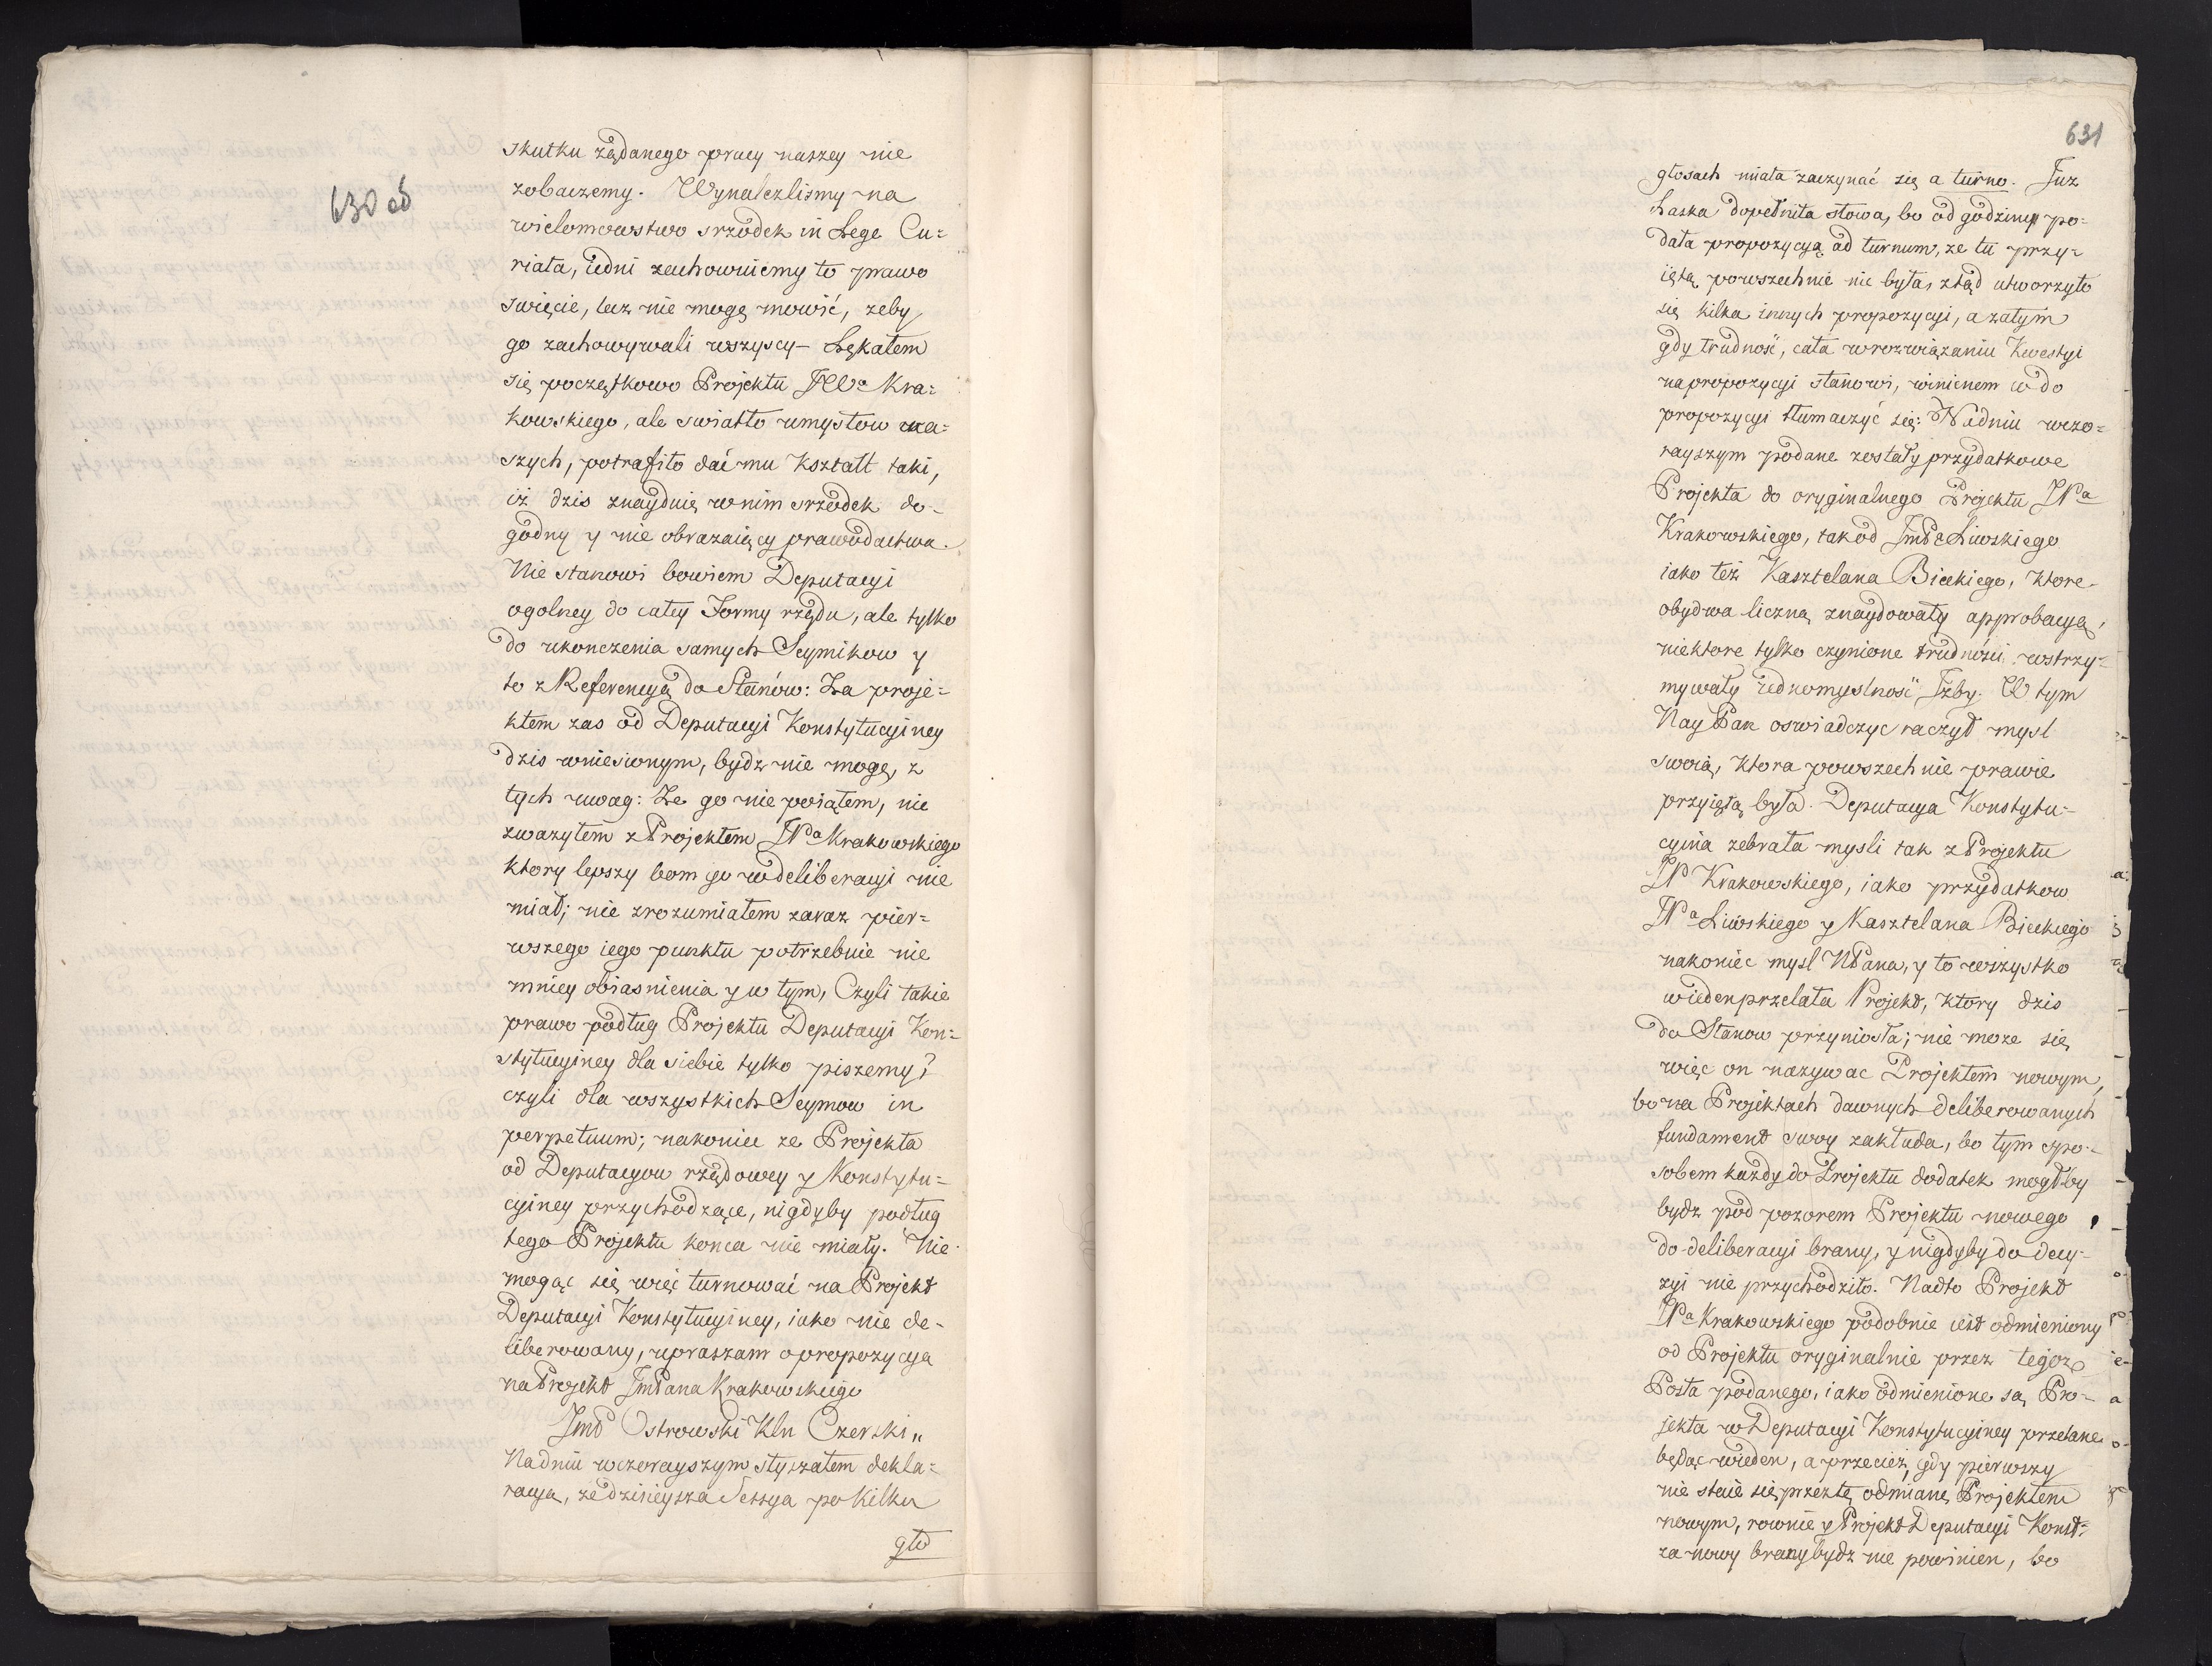 630 ob
skutku żądanego pracy naszey nie
zobaczemy. Wynalezlismy na
wielomowstwo srzodek in Lege Cu=
riata, iedni zachowuiemy to prawo
swięcie, lecz nie mogę mowić, zeby
go zachowywali wszyscy – Lękałem
się początkowo Projektu JWo Kra=
kowskiego, ale swiatło umysłow na=
szych, potrafiło dać mu kształt taki,
iż dzis znayduię w nim srzodek do=
godny y nie obrazaiący prawodactwa.
Nie stanowi bowiem Deputacyi
ogolney do całey Formy rządu, ale tylko
do ukonczenia samych Seymikow y
to z Referencyą do Stanów: Za proje=
ktem zas od Deputacyi Konstytucyiney
dzis wniesionym, bydz nie mogę, z
tych uwag: Ze go nie poiąłem, nie
zwazyłem z Projektem JPa Krakowskiego
ktory lepszy bom go w deliberacyi nie
miał; nie zrozumiałem zaraz pier=
wszego iego punktu potrzebnie nie
mniey obiasnienia y w tym, Czyli takie
prawo podług Projektu Deputacyi Kon=
stytucyiney dla siebie tylko piszemy?
czyli dla wszystkich Seymow in
perpetuum; nakoniec ze Projekta
od Deputacyow rządowey y Konstytu=
cyiney przychodzące, nigdyby podług
tego Projektu konca nie miały. Nie
mogąc się więc turnować na Projekt
Deputacyi Konstytucyiney, iako nie de=
liberowany, upraszam o propozycyą
na Projekt JmPana Krakowskiego
JmP Ostrowski Kln Czerski„
Na dniu wczorayszym słyszałem dekla=
racyą, ze dzisieysza Sessya po kilku
gło
631
głosach miała zaczynać się a turno. Juz
Laska dopełniła słowa, bo od godziny po=
dała propozycyą ad turnum, ze tu przy=
iętą powszechnie nie była, ztąd utworzyło
się kilka innych propozycyi, a zatym
gdy trudność, cała w rozwiązaniu Kwestyi
na propozycyi stanowi, winienem w do
propozycyi tłumaczyć się: Na dniu wczo=
rayszym podane zostały przydatkowe
Projekta do oryginalnego Projektu JPa
Krakowskiego, tak od JmPa Liwskiego
iako też Kasztelana Bieckiego, ktore
obydwa liczną znaydowały approbacyą,
niektore tylko czynione trudności wstrzy=
mywały iednomyslność Izby. W tym
Nay Pan oswiadczyc raczył mysl
swoią, ktora powszechnie prawie
przyiętą była. Deputacya Konstytu=
cyina zebrała mysli tak z Projektu
JP Krakowskiego, iako przydatkow
JPa Liwskiego y Kasztelana Bieckiego
nakoniec mysl NPana, y to wszystko
w ieden przelała Projekt, ktory dzis
do Stanow przyniosła; nie moze się
więc on nazywac Projektem nowym,
bo na Projektach dawnych deliberowanych
fundament swoy zakłada, bo tym spo=
sobem kazdy do Projektu dodatek mogłby
bydz pod pozorem Projektu nowego
do deliberacyi brany, y nigdyby do decy=
zyi nie przychodziło. Nadto Projekt
JPa Krakowskiego podobnie iest odmieniony
od Projektu oryginalnie przez tegoz
Posła podanego, iako odmienione są Pro=
jekta w Deputacyi Konstytucyiney przelane
będąc w ieden, a przecież gdy pierwszy
nie staie się przez tę odmianę Projektem
nowym, rownie y Projekt Deputacyi Konst:
za nowy brany bydz nie powinien, bo